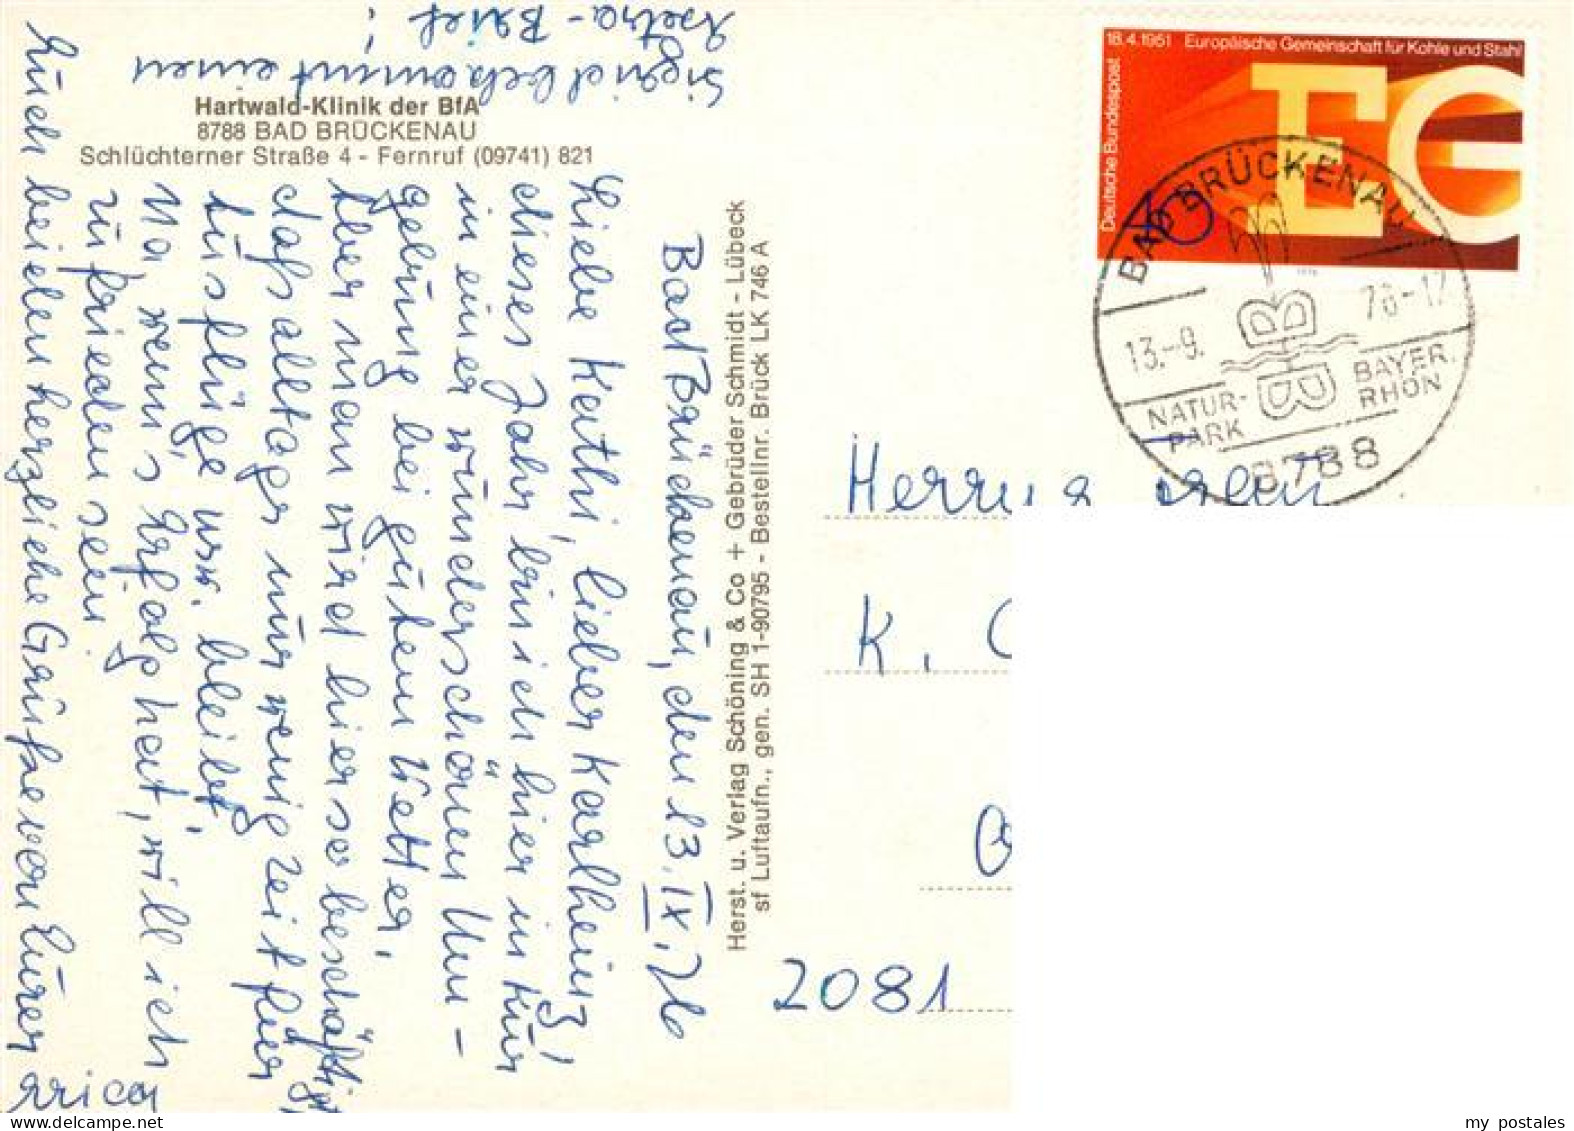 Hartwald-Klinik der BfA
8788 BAD BRÜCKENAU
Schlüchterner Straße 4 - Fernruf (09741) 821
Bad Brückenau, den 13.IX.76
Liebe Kathi, lieber Karlheinz!
dieses Jahr bin ich hier in Kur
in einer wunderschönen Um-
gebung bei gutem Wetter,
Aber man wird hier so beschäftigt
daß alltags nur wenig Zeit für
Ausflüge usw. bleibt.
Na, wenn's Erfolg hat, will ich
zufrieden sein.
Euch beiden herzliche Grüße von Eurer
Sigrid bekommt einen
Extra-Brief!
Herst. u. Verlag Schöning & Co + Gebrüder Schmidt - Lübeck
sf Luftaufn., gen. SH 1-90795 - Bestellnr. Brück LK 746 A
18.4.1951 Europäische Gemeinschaft für Kohle und Stahl
Deutsche Bundespost
EG
BAD BRÜCKENAU
13.-9. 76-17
NATUR-
PARK
BAYER.
RHÖN
8788
K.
2081
my postales